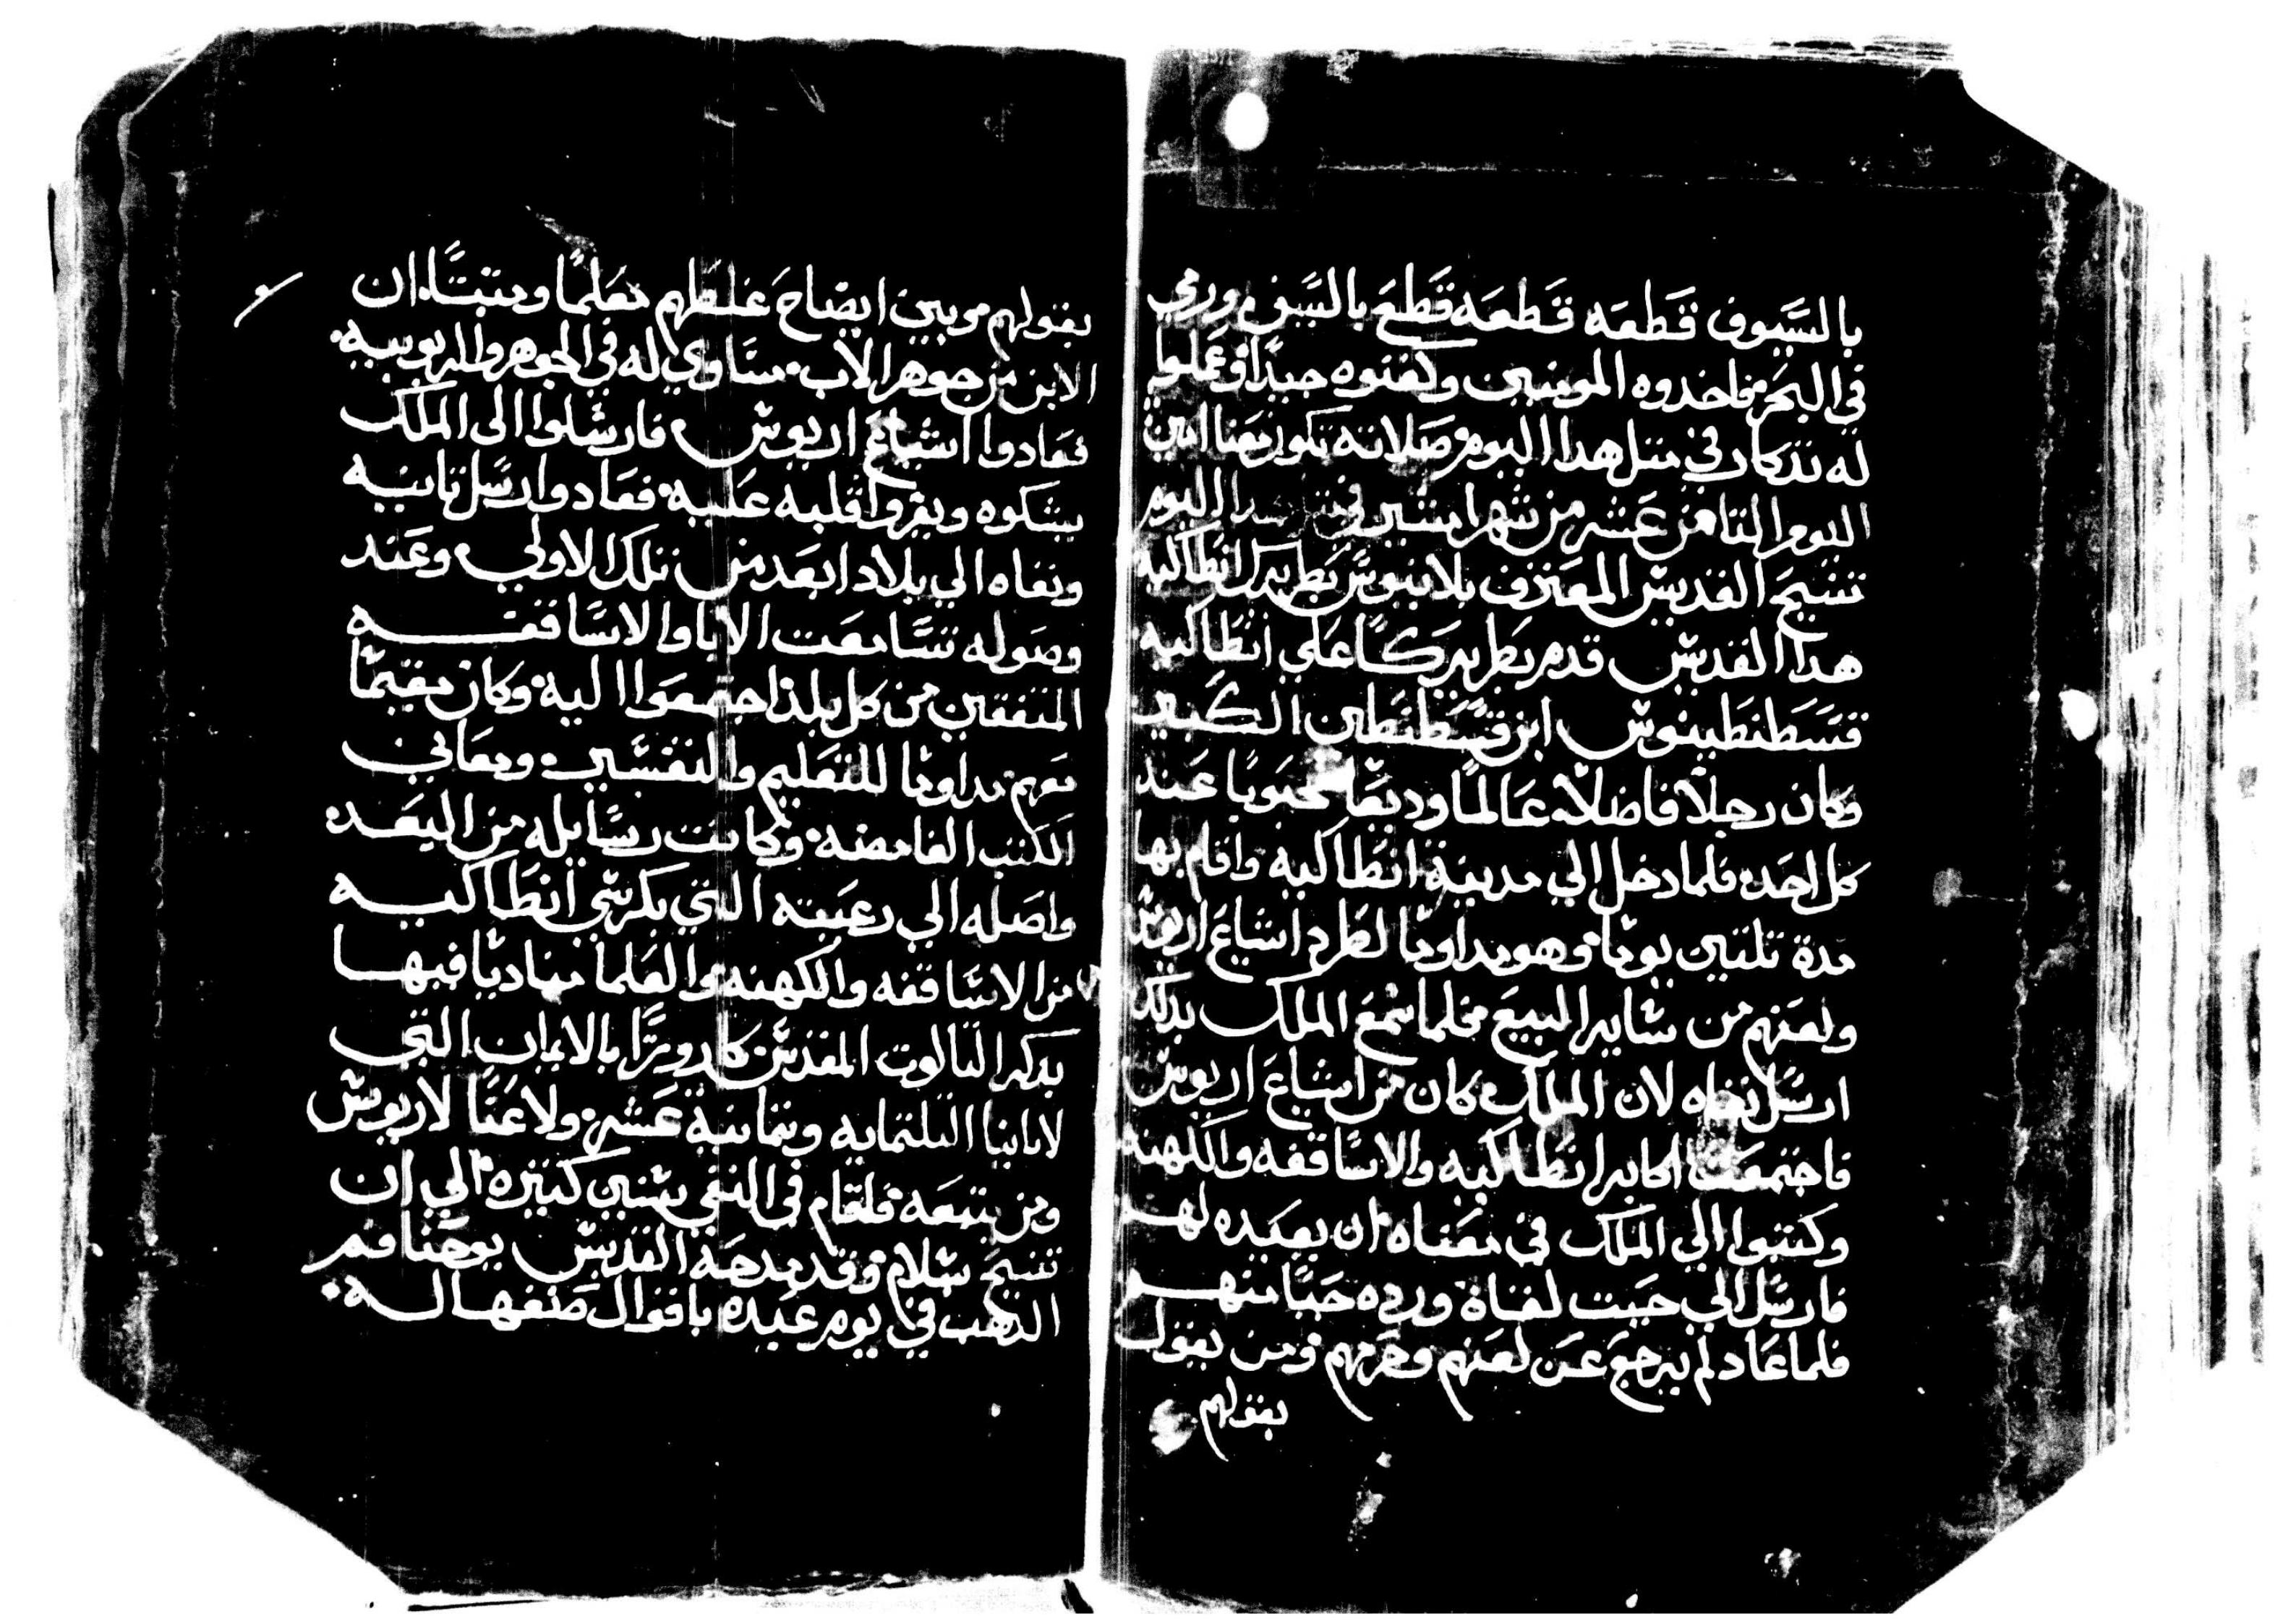 بالسيوف قطعه قطعه قطع بالسيف ورمي
في البحر فاخدوه المومنين وكفنوه جيدا وعملوا
له تدكار في متل هدا اليوم صلاته تكون معنا امين
اليوم التامن عشر من شهر امشير في هدا اليوم
تنيح القديس المعترف بلانيوس بطريرك انطاكيه
هدا القديس قدم بطريركا علي انطاكيه
قسطنطينوس ابن قسطنطين الكبير
وكان رجلا فاضلا عالما وديعا محبوبا عند
كل احد فلما دخل الي مدينة انطاكيه واقام بها
مدة تلتين يوما وهو مداوما لطرد اشياع اريوس
ولعنهم من ساير البيع فلما سمع الملك بدلك
ارسل نفاه لان الملك كان من اشياع اريوس
فاجتمعت اكابر انطاكيه والاساقفه والكهنه
وكتبوا الي الملك في معناه ان يعيده لهم
فارسل الي حيت لفناه ورده حيا منهم
فلما عاد لم يرجع عن لعنهم وحرمهم ومن يقول
بقولهم
بقولهم مبين ايضاح غلطهم معلما ومتبتا ان
الابن من جوهر الاب مساوي له في الجوهر والربوبيه
فعادوا اشياع اريوس فارسلوا الي الملك
يشكوه ويغروا قلبه عليه فعاد وارسل تانيه
ونفاه الي بلاد ابعد من تلك الاولي وعند
وصوله تسامعت الابا والاساقفه
المتفقين من كل بلد اجتمعوا اليه وكان مقيما
معهم مداوما للتعليم والتفسير ومعاني
الكتب الغامضه وكانت رسايله من البعد
واصله الي رعيته التي بكرسي انطاكيه
من الاساقفه والكهنه والعلما مناديا فيها
بدكر التالوت المقدس كارورا بالايمان التي
لابابنا التلتمايه وتمانية عشر ولاعنا لاريوس
ومن يتبعه فاقام في النفي سنين كتيره الي ان
تنيح بسلام وقد مدحه القديس يوحنا فم
الدهب في يوم عيده باقوال صنفها له